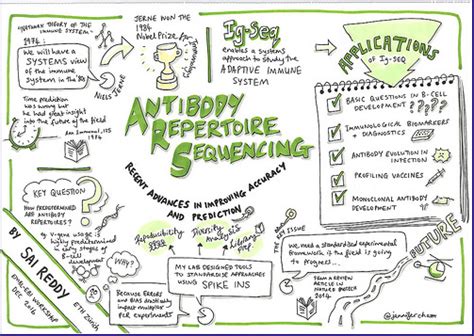 "NETWORK THEORY OF THE
IMMUNE SYSTEM"
1974:
we will have a
SYSTEMS view
of the immune
system in the
NIELS JERNE
Time prediction
was wrong but
he had great insight
into the future of the field
Ann Immunol, 125
1974
JERNE WON THE
1984
Nobel Prize
Ig-seq
enables a systems
approach to study the
ADAPTIVE IMMUNE
SYSTEM
APPLICATIONS
of Ig-SEQ
BASIC QUESTIONS IN B-CELL
DEVELOPMENT ????
IMMUNOLOGICAL BIOMARKERS
+ DIAGNOSTICS
ANTIBODY EVOLUTION IN
INFECTION
PROFILING VACCINES
MONOCLONAL ANTIBODY
DEVELOPMENT
ANTIBODY
REPERTOIRE
SEQUENCING
RECENT ADVANCES IN IMPROVING ACCURACY
AND PREDICTION
KEY QUESTION
HOW
PREDETERMINED
ARE ANTIBODY
REPERTOIRES?
V-gene usage is
highly predetermined
in early stages of
B-cell
development
BY SAI REDDY
ETH Zürich
EMBL-EBI WORKSHOP
DEC 2016
WHY?
Because ERRORS
and BIAS drastically
impact
EXPERIMENTS
Reproducibility
Diversity
Analysis
Library
Prep
MY LAB DESIGNED TOOLS
TO STANDARDISE APPROACHES
USING SPIKE INS
KEY ISSUE
we need a standardised experimental
framework if the field is going
to progress...
FROM A REVIEW
ARTICLE IN
NATURE BIOTECH
2014
FUTURE
@jennifercham